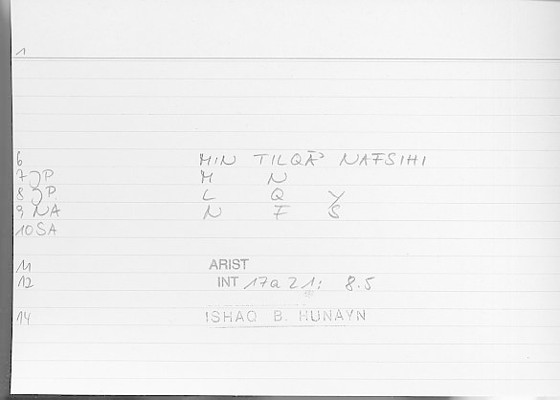 1
6 MIN TILQĀʾ NAFSIHI
7 P M N
8 P L Q Y
9 NA N F S
10 SA
11 ARIST
12 INT 17a21: 8.5
14 ISHAQ B. HUNAYN